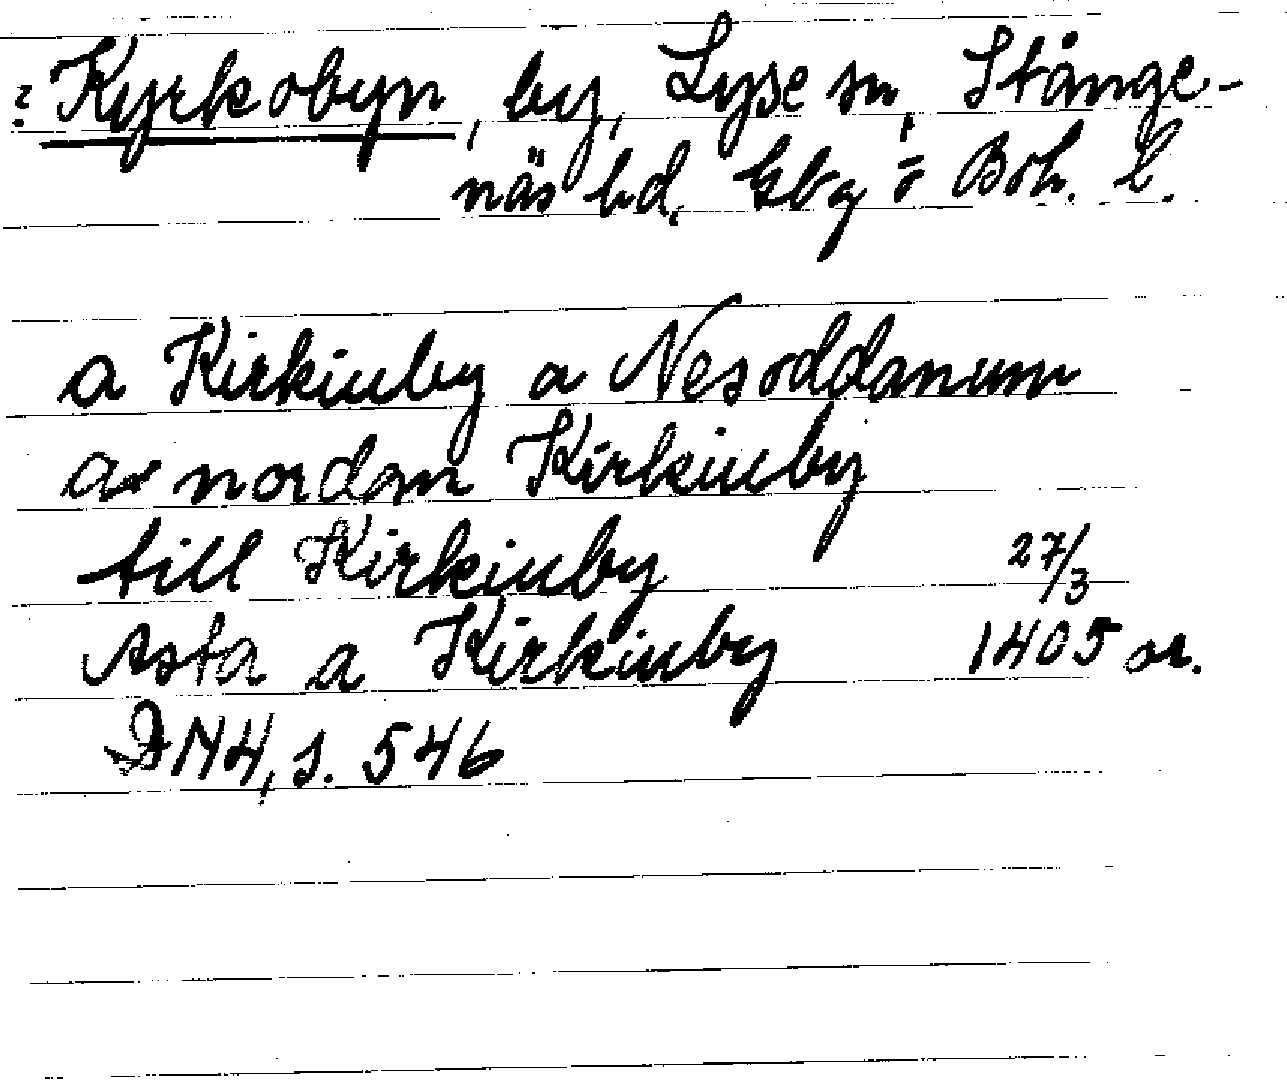 ? Kyrkobyn, by, Lyse sn, Stånge-
näs hd. Gbg o Boh. l.
a Kirkiuby a Nesoddanum
a nordan Kirkiuby
till Kirkiuby 27/3
Asta a Kirkiuby 1405 or.
DN 4, s. 546